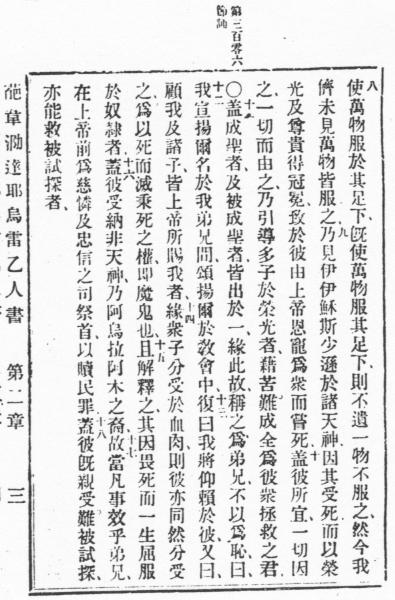 第三百零六
節誦
八使萬物服於其足下旣使萬物服其足下則不遺一物不服之、然今我
儕未見萬物皆服之、九乃見伊伊穌斯少遜於諸天神、因其受死而以榮
光及尊貴得冠冕、致於彼由上帝恩寵爲衆而嘗死、十蓋彼所宜一切因
之一切而由之、乃引導多子於榮光者、藉苦難成全爲彼衆拯救之君、
〇十一蓋成聖者及被成聖者皆出於一、緣此故稱之爲弟兄不以爲恥、曰、
十二我宣揚爾名於我弟兄間、頌揚爾於敎會中、十三復曰我將仰賴於彼、又曰、
顧我及諸子皆上帝所賜我者、十四緣衆子分受於血肉、則彼亦同然分受
之、爲以死而滅秉死之權、卽魔鬼也、十五且解釋之其因畏死而一生屈服
於奴隸者、十六蓋彼受納非天神、乃阿烏拉阿木之裔、故當凡事效乎弟兄、
在上帝前爲慈憐及忠信之司祭首、以贖民罪、十八蓋彼旣親受難被試探、
亦能救被試探者、
葩韋泐達耶烏雷乙人書 第二章 三